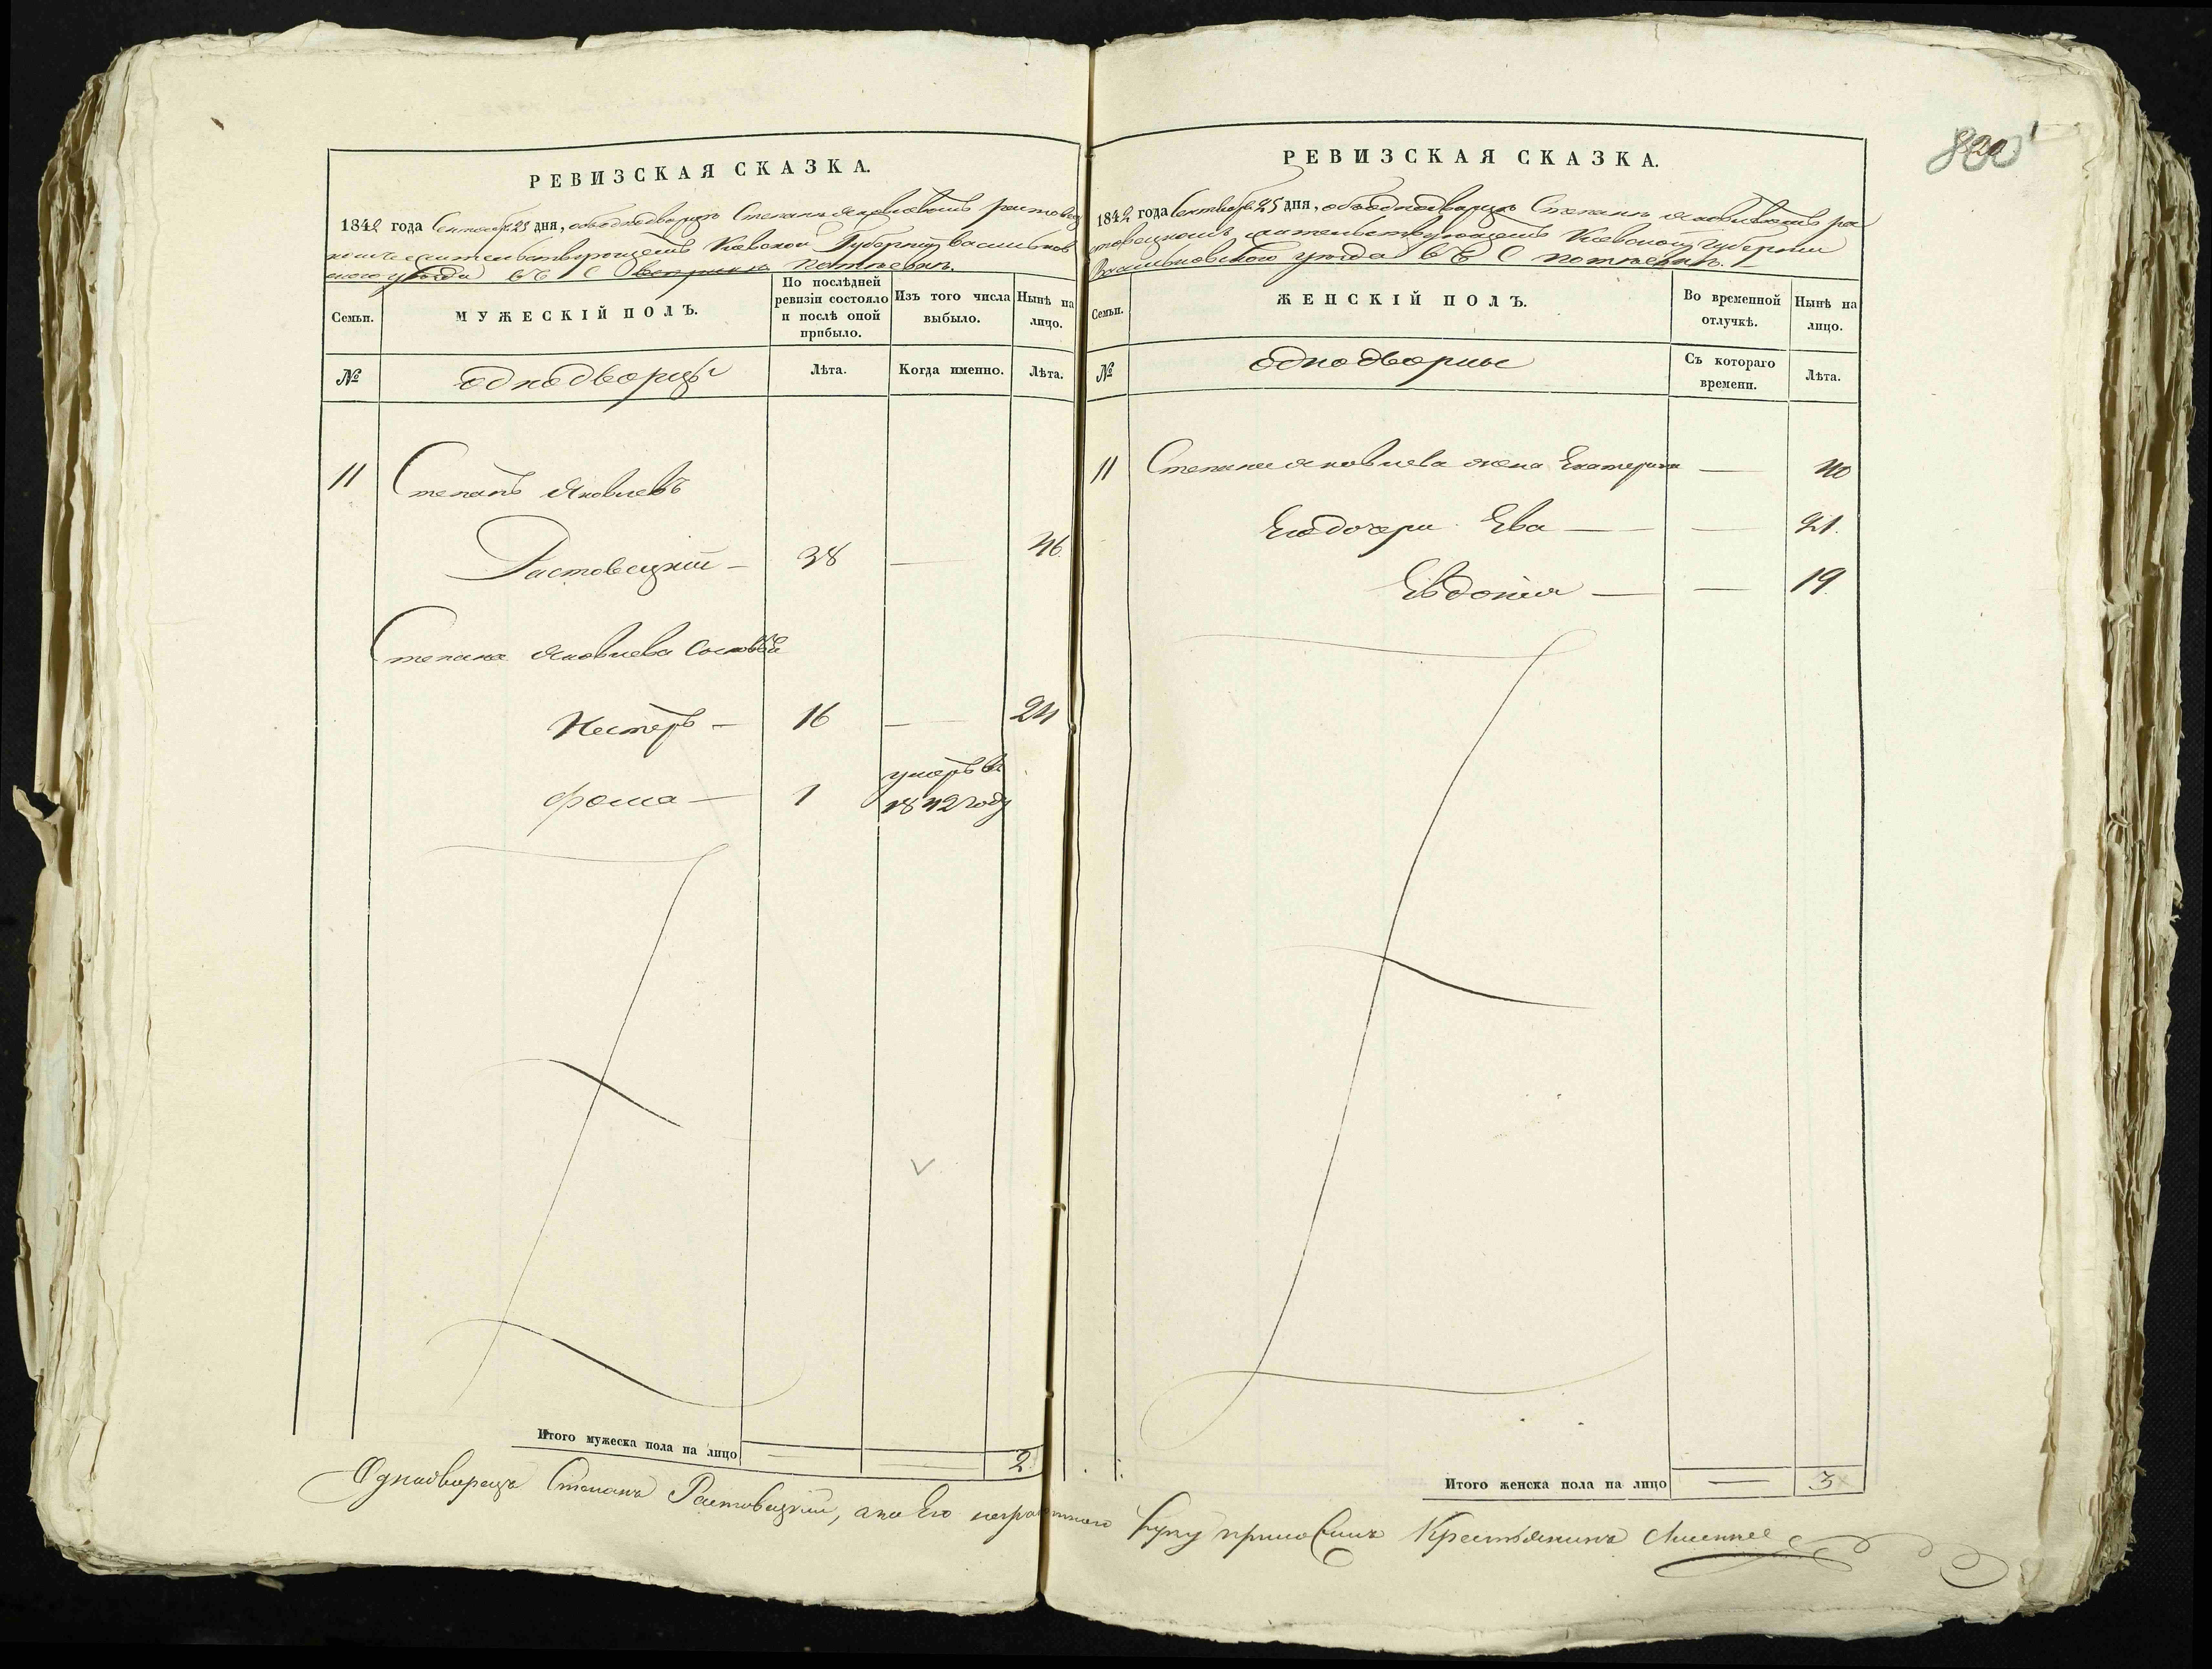 РЕВИЗСКАЯ СКАЗКА.
1842 года Сентября 25 дня, ободнодворцѣ Степанѣ Яковлевомъ растовец
комъ жительствующемъ Киевской Губерніи Васильков
ского уѣзда въ С Потіевки.
Семьи.
МУЖЕСКІЙ ПОЛЪ.
По послѣдней ревизіи состояло и послѣ оной прибыло.
Изъ того числа выбыло.
Нынѣ на лицо.
№
однодворцы
Лѣта.
Когда именно.
Лѣта.
11 Степанъ Яковлевъ
Растовецкій — 38 — 46
Степана Яковлева Сыновья
Нестеръ — 16 — 24
Фома — 1 умеръ въ
1842 году
Итого мужеска пола на лицо 2
РЕВИЗСКАЯ СКАЗКА.
1842 года Сентября 25 дня, ободнодворцѣ Степанѣ Яковлевомъ ра
стовецкомъ жительствующемъ Киевской Губерніи
Васильковского уѣзда въ С Потіевки.
Семьи.
ЖЕНСКІЙ ПОЛЪ.
Во временной отлучкѣ.
Нынѣ на лицо.
№
однодворцы
Съ котораго времени.
Лѣта.
11 Степана Яковлева жена Екатерина — 40
Его дочери Ева — — 21.
Евдокія — — 19.
Итого женска пола на лицо — 3
Однодворецъ Степанъ Растовецкій, а по Его неграмотности руку приложилъ Крестьянинъ